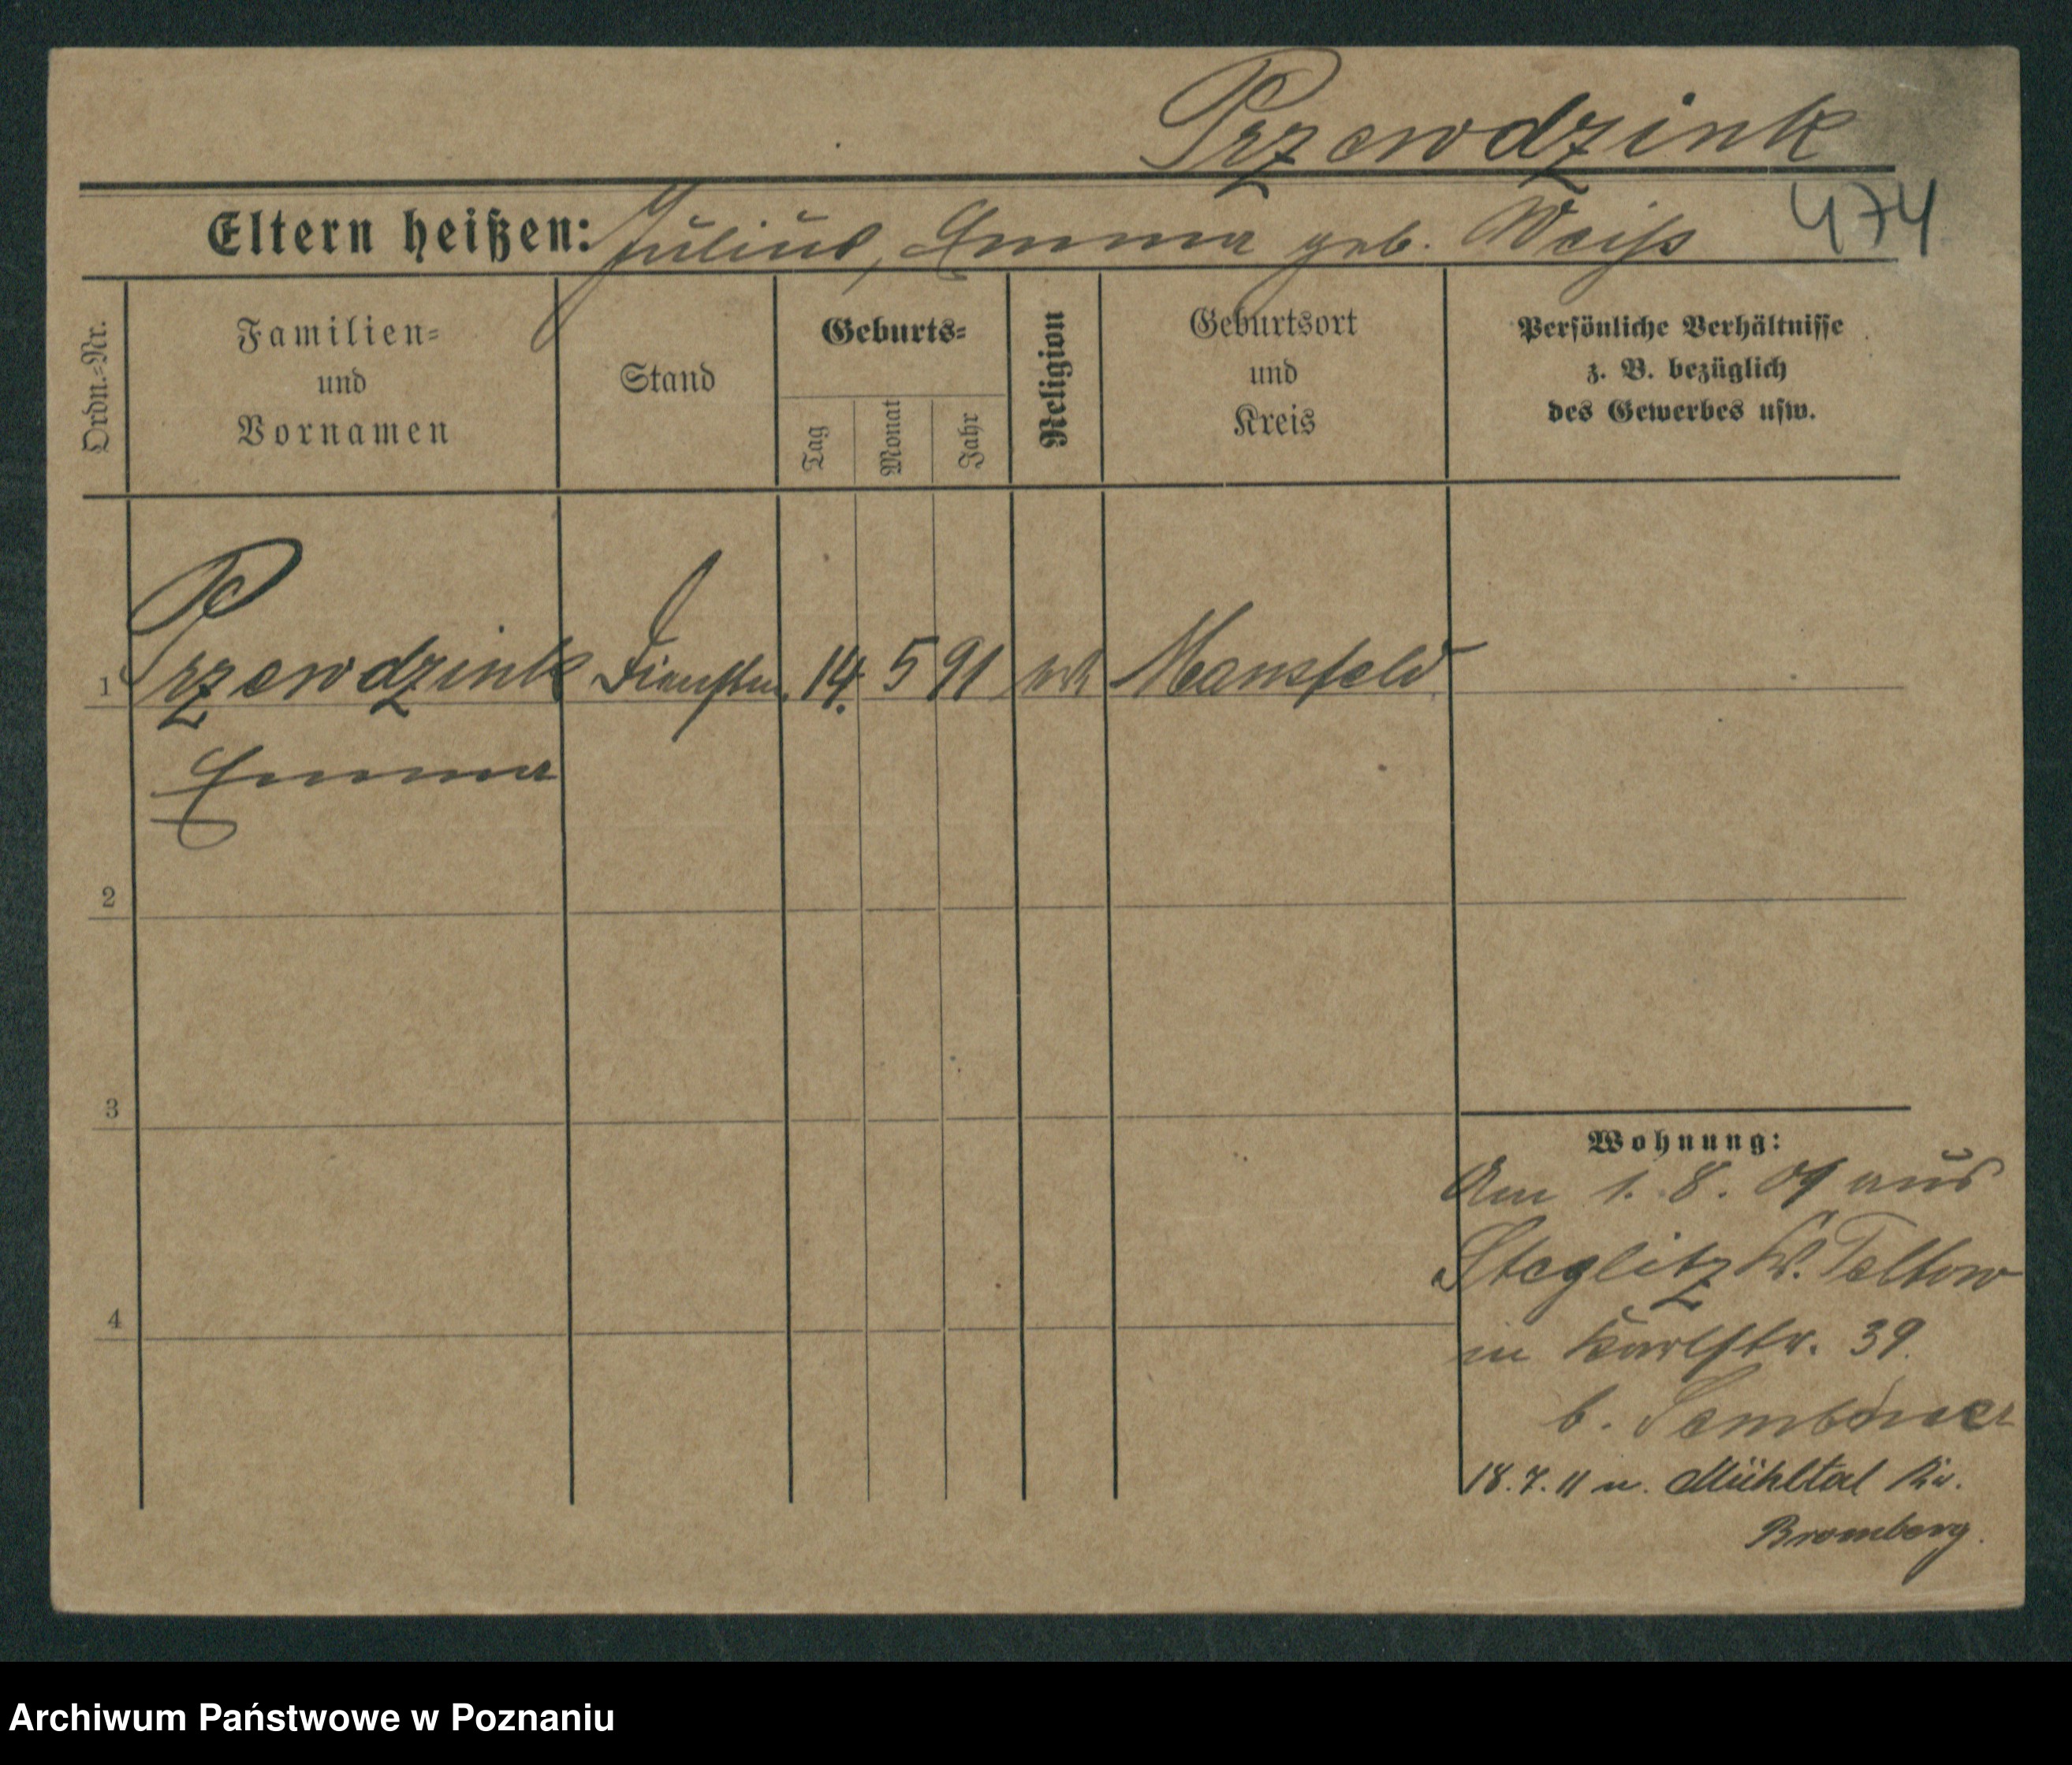 Przewdzink
474
Eltern heißen: Julius, Emma geb. Weiß
Ordn.-Nr.
Familien-
und
Vornamen
Stand
Geburts-
Tag
Monat
Jahr
Religion
Geburtsort
und
Kreis
Persönliche Verhältnisse
z. B. bezüglich
des Gewerbes usw.
1 Przewdzink 14. 5 91 Mansfeld
Emma
2
3
4
Wohnung:
Am 1. 8. 09 aus
Steglitz Kr. Teltow
in Karlstr. 39.
b.
18.7.11 n. Mühltal Kr.
Bromberg.
Archiwum Państwowe w Poznaniu